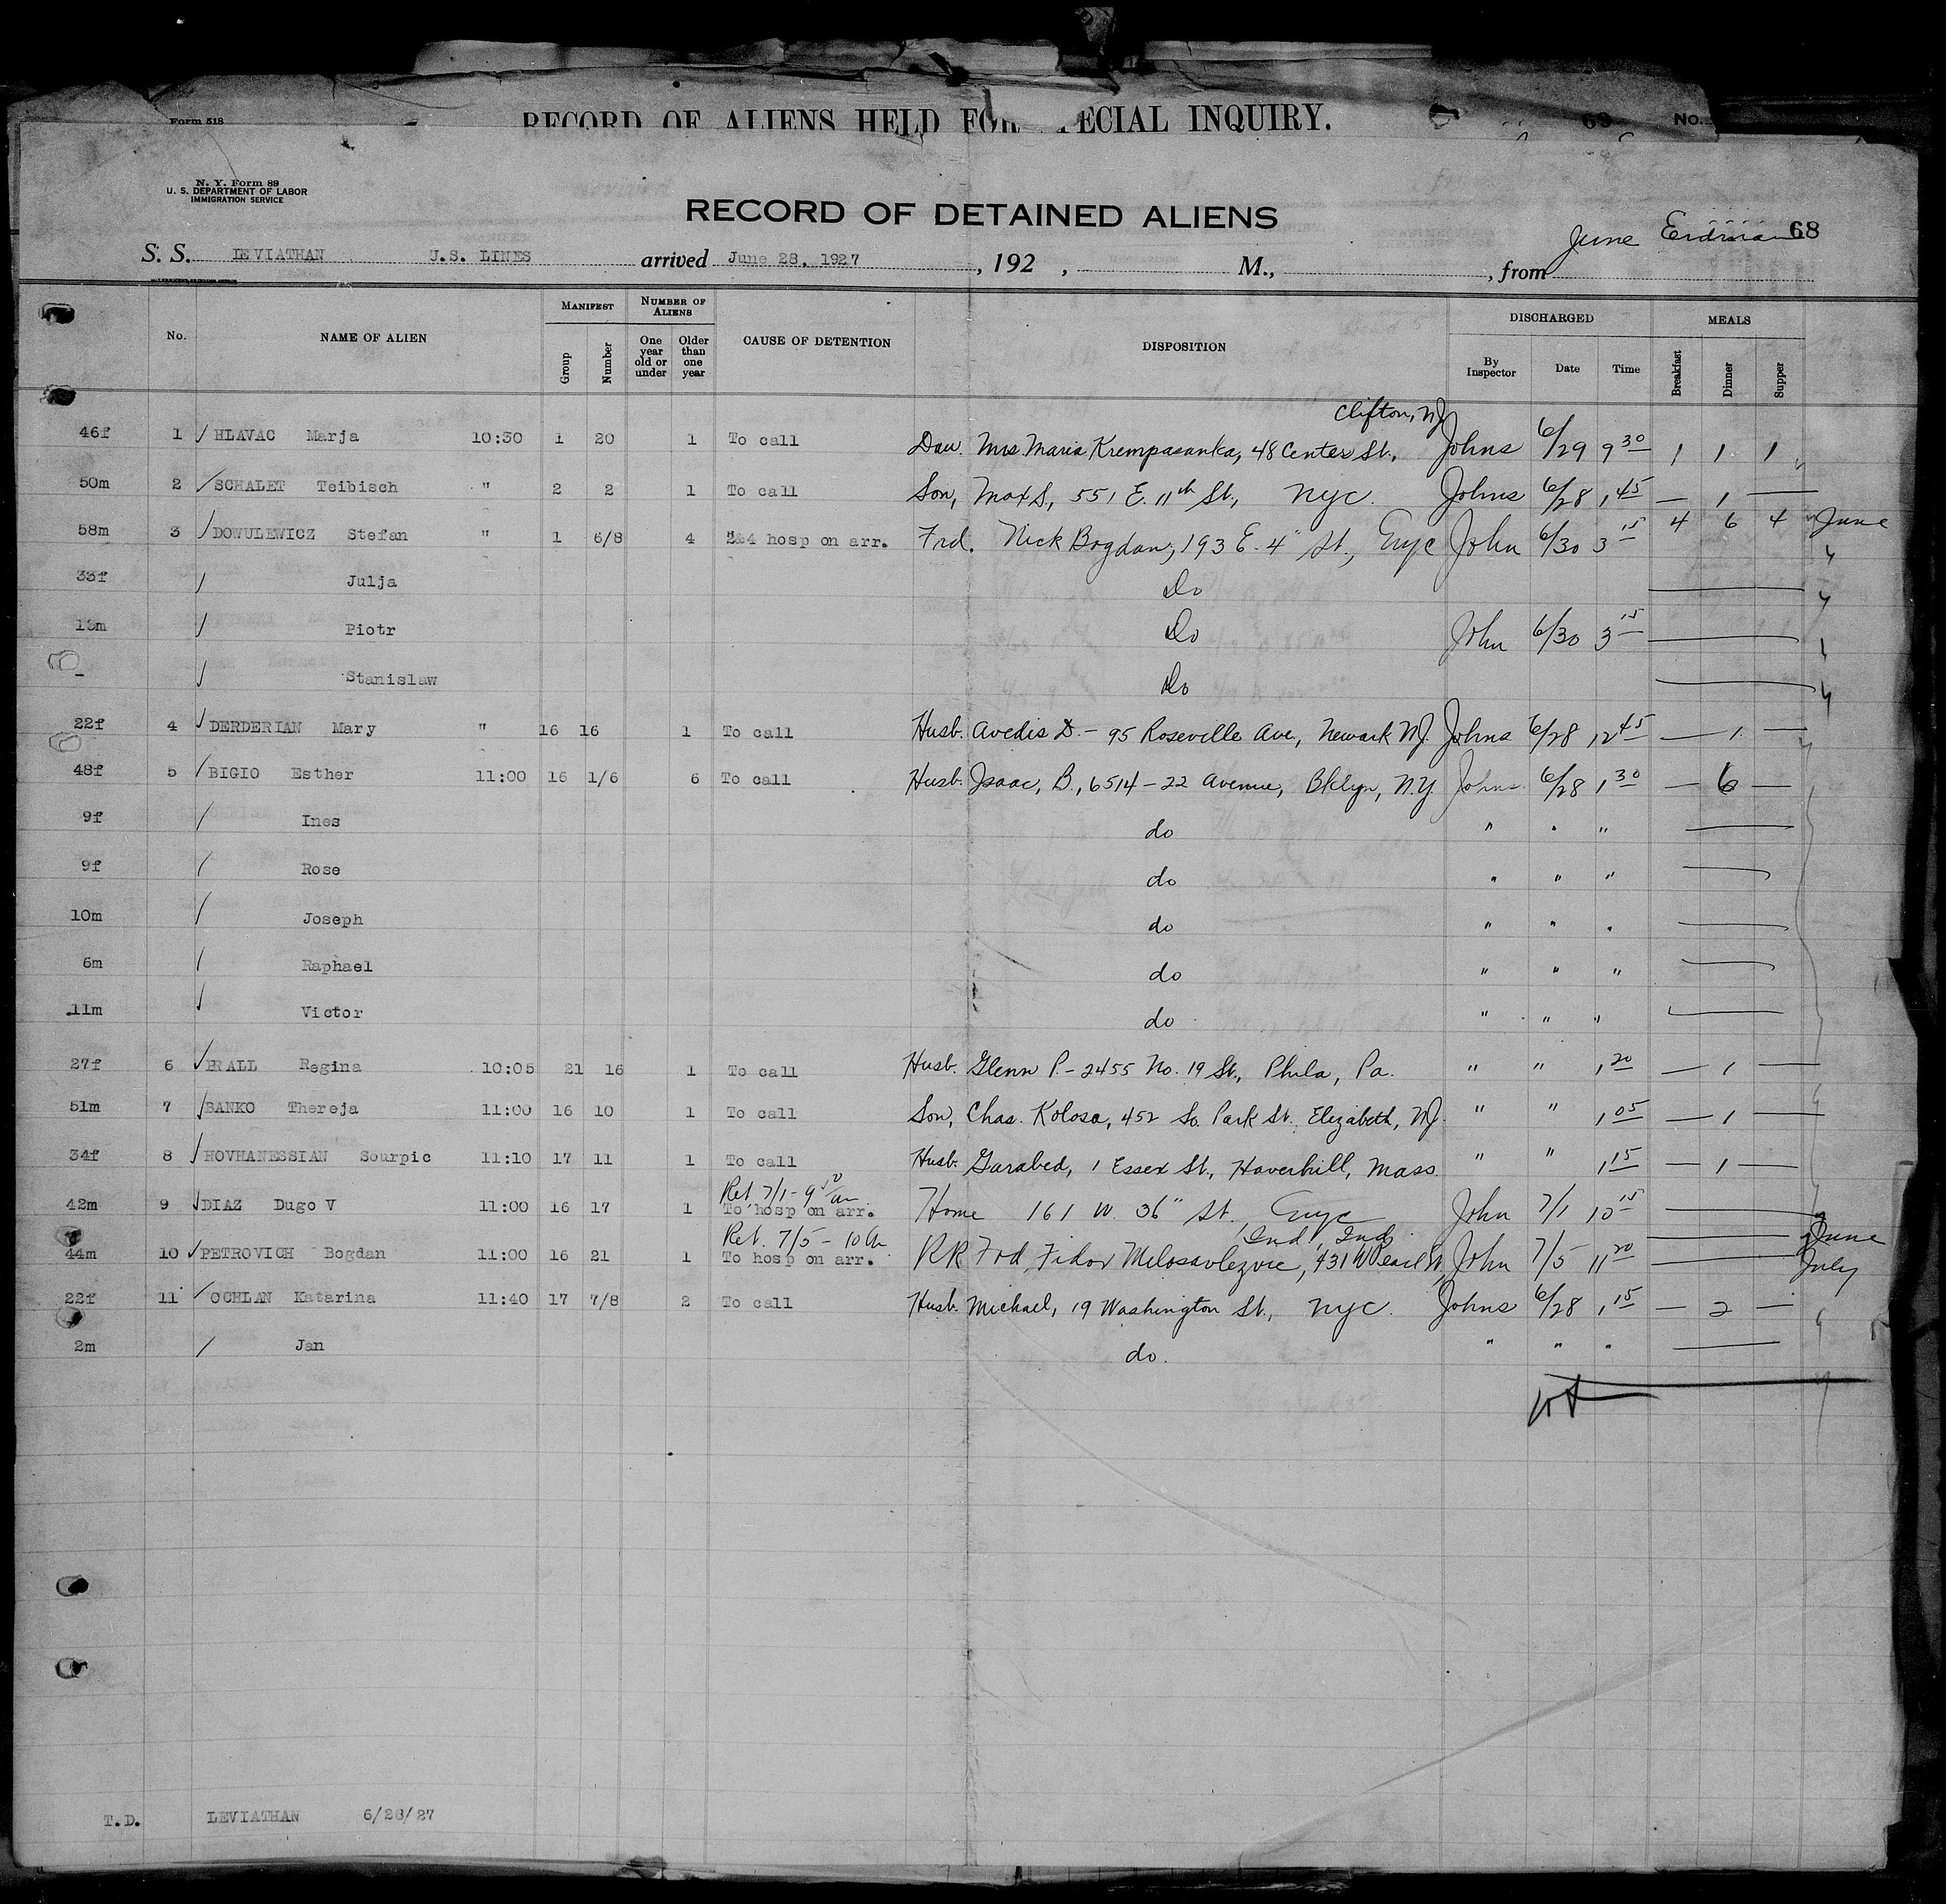 Form 518
RECORD OF ALIENS HELD FOR SPECIAL INQUIRY.
69 No.
N. Y. Form 89
U. S. DEPARTMENT OF LABOR
IMMIGRATION SERVICE
RECORD OF DETAINED ALIENS
June Erdman 68
S. S. LEVIATHAN U.S. LINES arrived June 28, 1927, 192 , M., , from
MANIFEST NUMBER OF ALIENS DISCHARGED MEALS
No. NAME OF ALIEN Group Number One year old or under Older than one year CAUSE OF DETENTION DISPOSITION By Inspector Date Time Breakfast Dinner Supper
Clifton, NJ
46f 1 / HLAVAC Marja 10:30 1 20 1 To call Dau. Mrs Maria Krempasanka, 48 Center St., Johns 6/29 9 30 1 1 1
50m 2 / SCHALET Teibisch " 2 2 1 To call Son, Max S, 551 E. 11th St., NYC. Johns 6/28 1 45 — 1 —
58m 3 / DOWULEWICZ Stefan " 1 6/8 4 2&4 hosp on arr. Frd. Nick Bogdan, 193 E. 4" St., NYC John 6/30 3 15 4 6 4 June
33f / Julja Do
13m / Piotr Do John 6/30 3 15
- / Stanislaw Do
22f 4 / DERDERIAN Mary " 16 16 1 To call Husb. Avedis D. - 95 Roseville Ave, Newark NJ. Johns 6/28 12 45 — 1 —
48f 5 / BIGIO Esther 11:00 16 1/6 6 To call Husb. Isaac, B., 6514 - 22 Avenue, Bklyn, N.Y. Johns 6/28 1 30 — 6 —
9f / Ines do " " "
9f / Rose do " " "
10m / Joseph do " " "
6m / Raphael do " " "
11m / Victor do " " "
27f 6 / BRALL Regina 10:05 21 16 1 To call Husb. Glenn P - 2455 No. 19 St., Phila, Pa. " " 1 20 — 1 —
51m 7 / BANKO Thereja 11:00 16 10 1 To call Son, Chas. Kolosa, 452 So. Park St. Elizabeth, NJ. " " 1 05 — 1 —
34f 8 / HOVHANESSIAN Sourpic 11:10 17 11 1 To call Husb. Garabed, 1 Essex St., Haverhill, Mass. " " 1 15 — 1 —
Ret 7/1 - 9 50 am
42m 9 / DIAZ Dugo V 11:00 16 17 1 To hosp on arr. Home 161 W. 36" St. NYC John 7/1 10 15
Ret. 7/5 - 10 A Ind, Ind June
44m 10 / PETROVICH Bogdan 11:00 16 21 1 To hosp on arr. RR Frd Fidor Milosavlezvic, 431 W Pearl St, John 7/5 11 20 July
22f 11 / COHLAN Katarina 11:40 17 7/8 2 To call Husb. Michael, 19 Washington St., NYC. Johns 6/28 1 15 — 2 —
2m / Jan do. " " "
T.D. LEVIATHAN 6/28/27